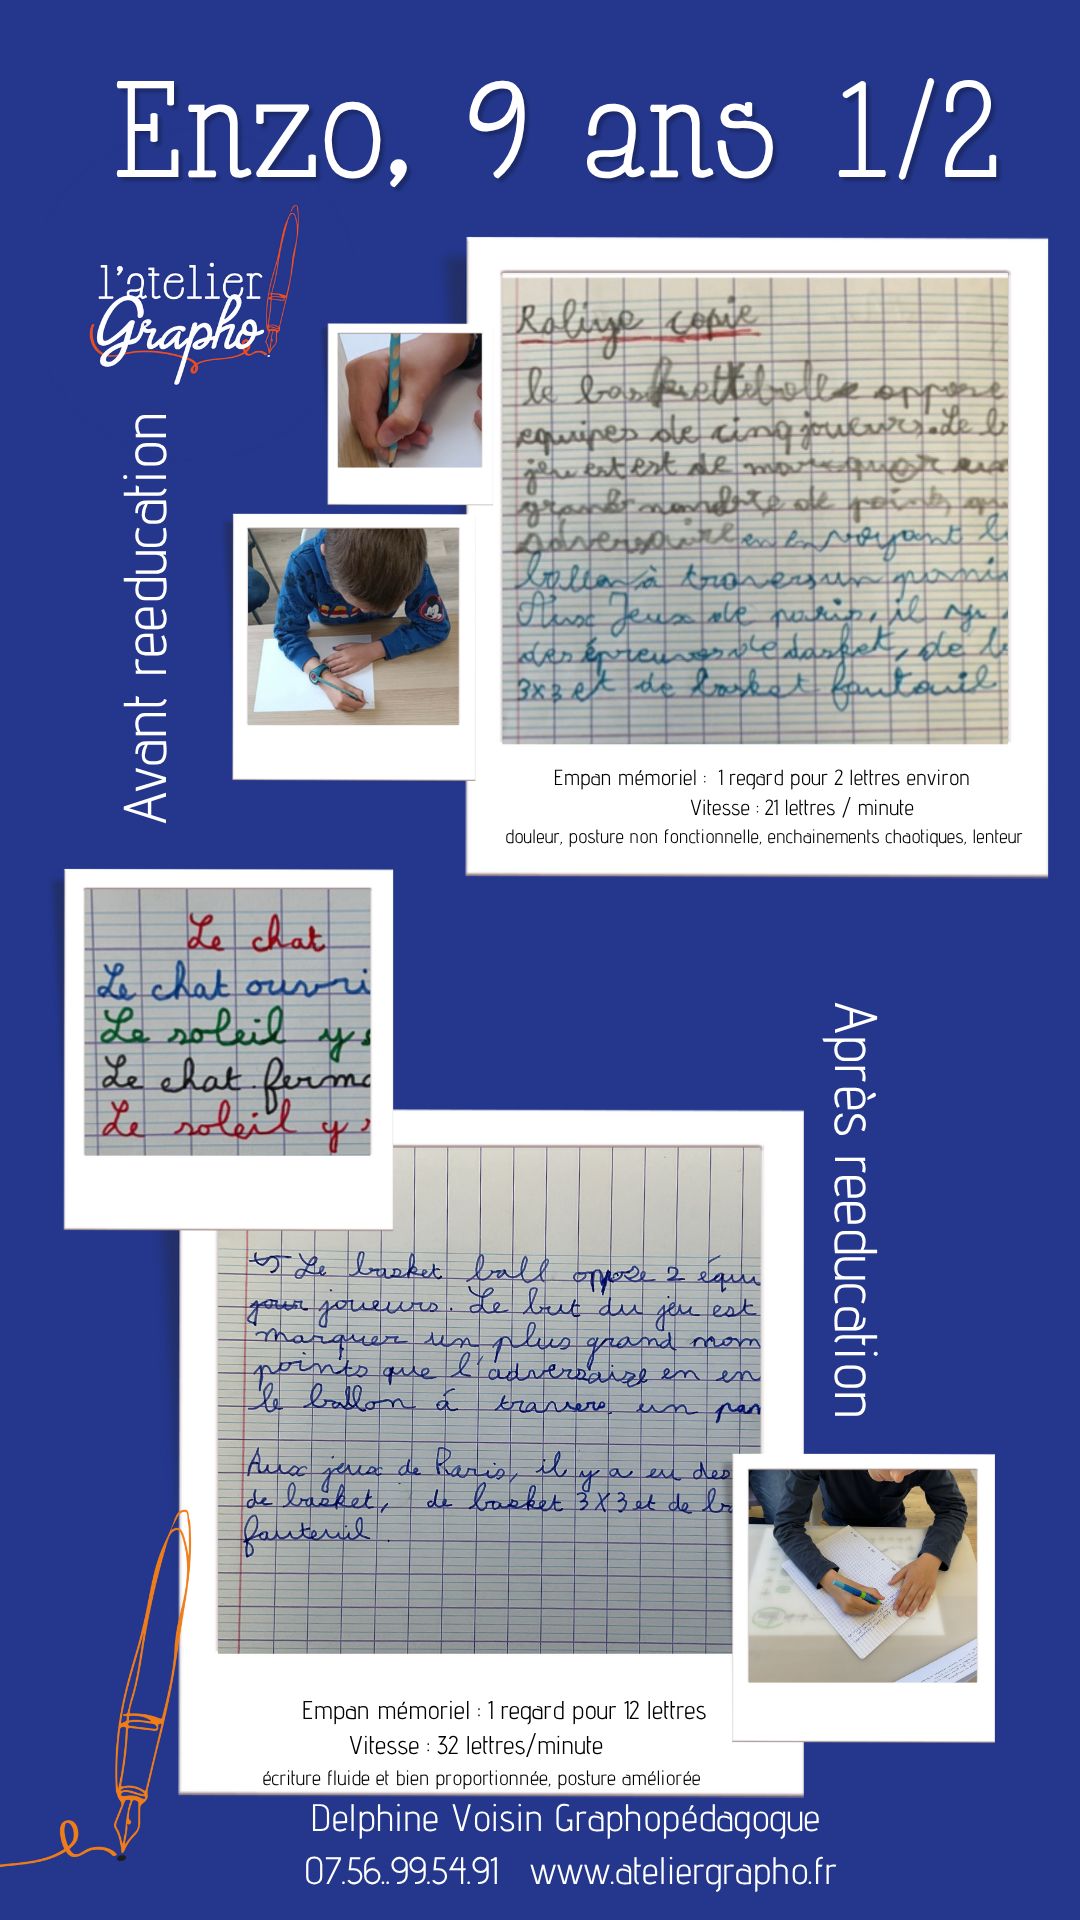 Enzo, 9 ans 1/2
l'atelier
Grapho
Avant reeducation
Raliye copie
le baskettebolle oppose
equipes de cinq joueurs. Le b
jeu est est de marquer
grand nombre de points qu
adversaire en envoyant l
ballon à travers un pani
Aux Jeux de paris, il y
des épreuves de basket, de b
3x3 et de basket fautauil
Empan mémoriel : 1 regard pour 2 lettres environ
Vitesse : 21 lettres / minute
douleur, posture non fonctionnelle, enchainements chaotiques, lenteur
Le chat
Le chat ouvri
Le soleil y s
Le chat ferma
Le soleil y s
Après reeducation
Le basket ball oppose 2 équi
jour joueurs. Le but du jeu est
marquer un plus grand nom
points que l'adversaire en en
le ballon á travers un pan
Aux jeux de Paris, il y a eu des
de basket, de basket 3X3 et de b
fauteuil.
Empan mémoriel : 1 regard pour 12 lettres
Vitesse : 32 lettres/minute
écriture fluide et bien proportionnée, posture améliorée
Delphine Voisin Graphopédagogue
07.56..99.54.91 www.ateliergrapho.fr